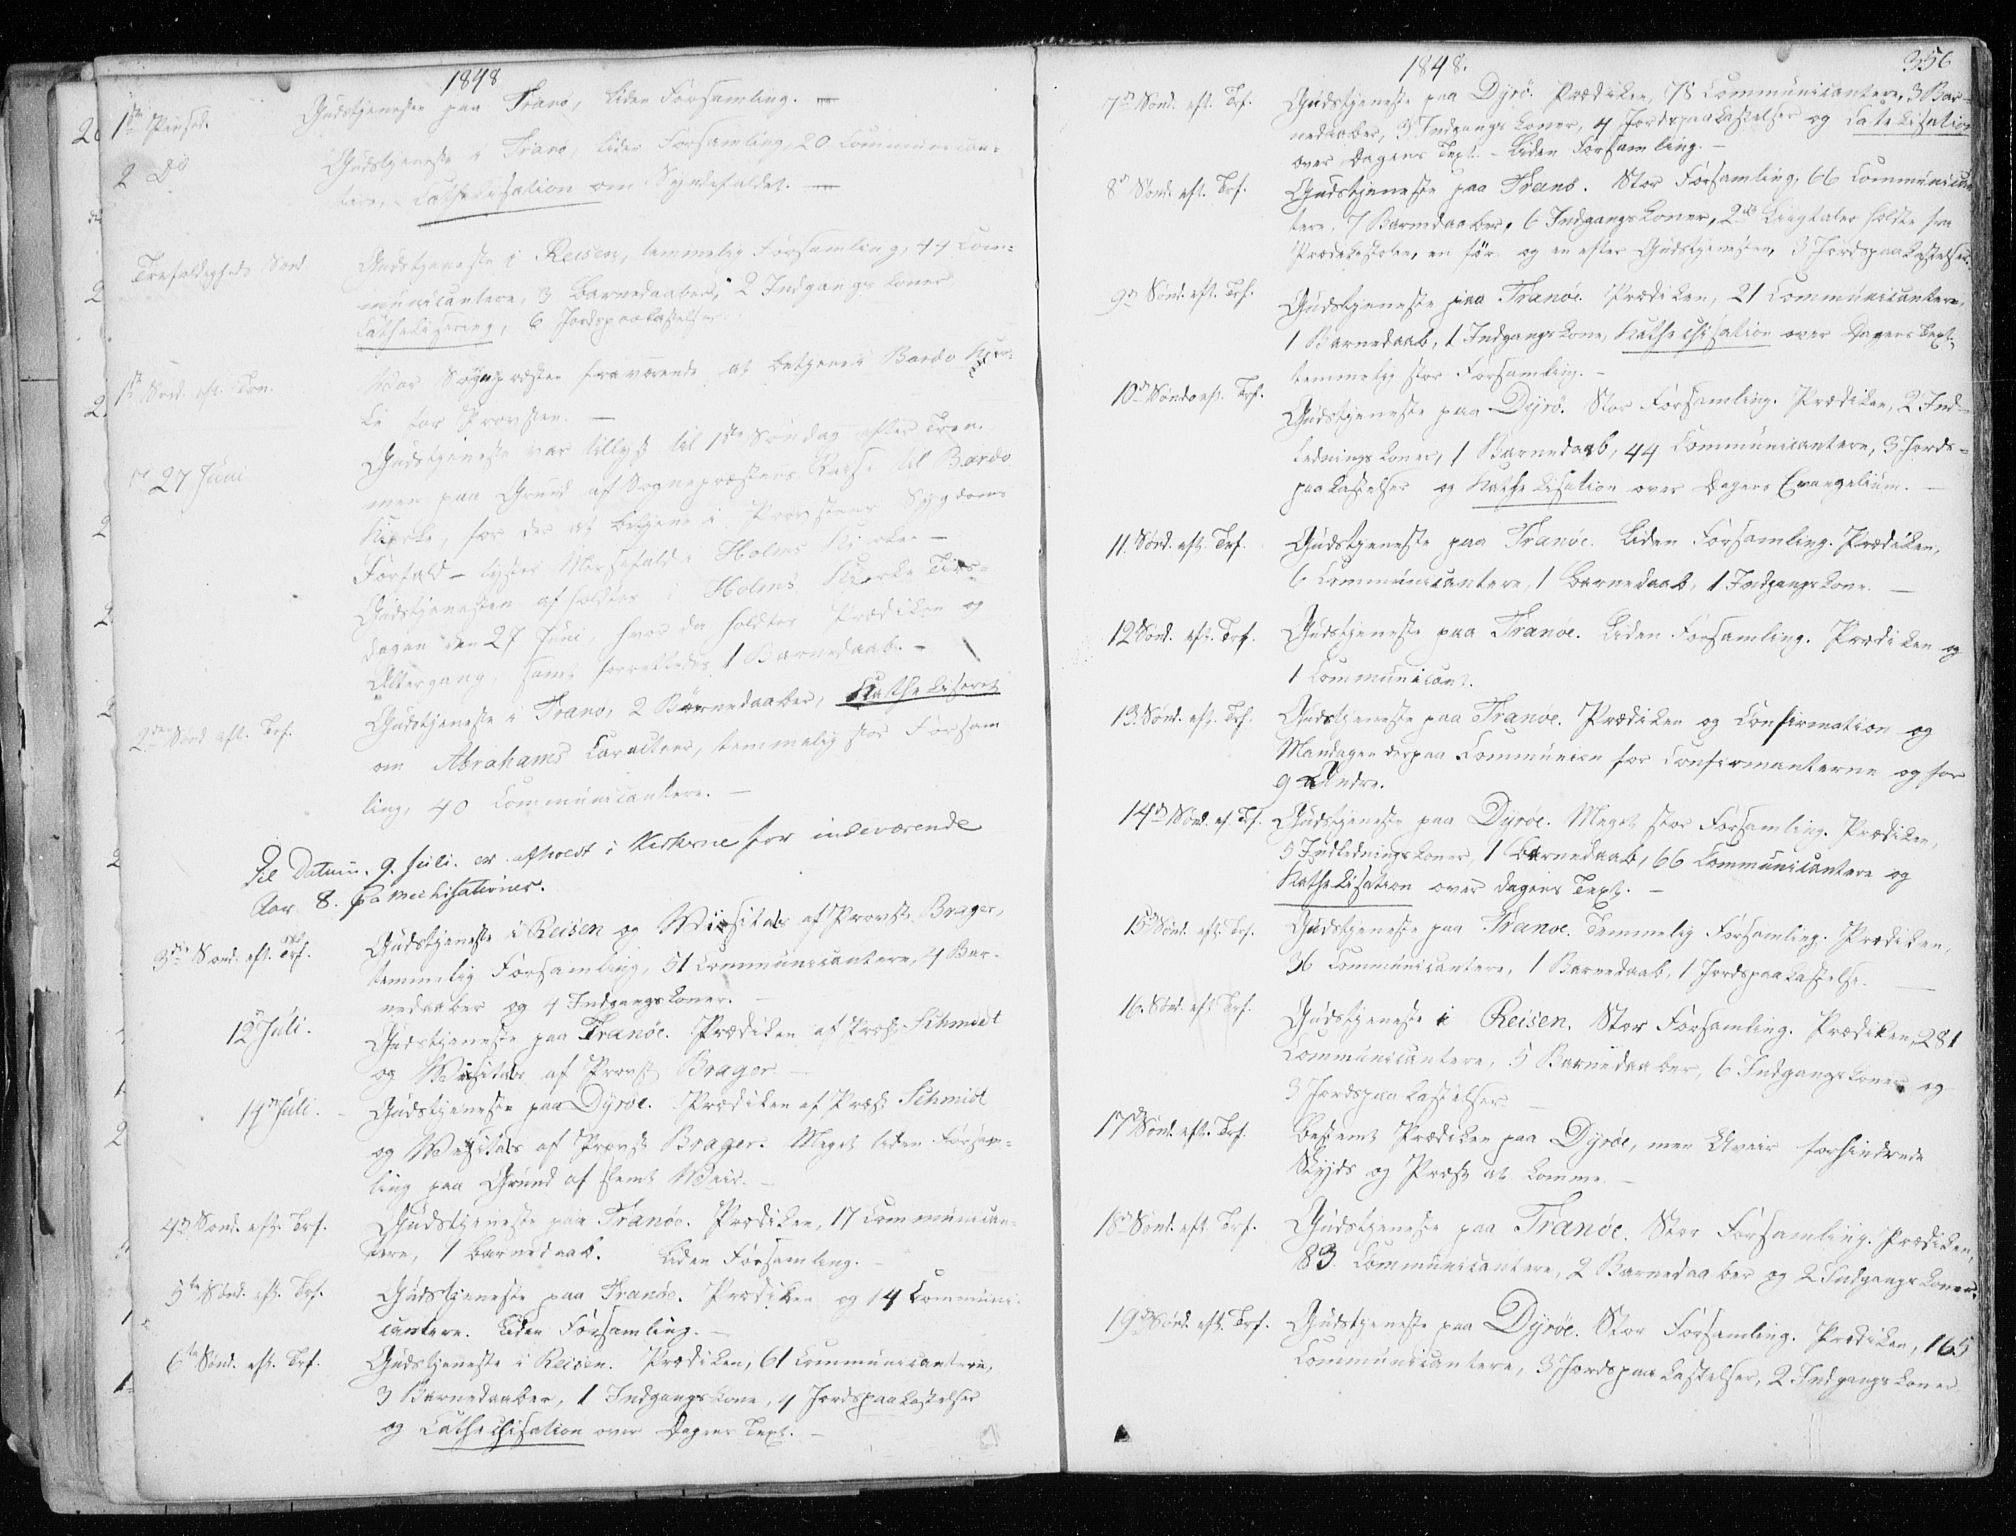 1848
1ste Pinsed. Gudstjeneste paa Tranø, liden Forsamling. —
2 Do Gudstjeneste i Tranø, liden Forsamling, 20 Communican-
tere, Cathekisation om Syndefaldet. —
Trefoldigheds Sønd. Gudstjeneste i Reisen, temmelig Forsamling, 44 Com-
municantere, 3 Barnedaaber, 2 Indgangskoner
Cathekisering, 6 Jordspaakastelser.
1ste Sønd. eft. Tre. Var Sognepræsten fraværende at betjene i Bardo Kir-
ke for Provsten. —
Gudstjeneste var tillyst til 1ste Søndag efter Tref.
27 Juni men paa Grund af Sognepræstens Reise til Bardo
Kirke, for der at betjene i Provstens Sygdoms
Forfald — lystes Messefald i Holms Kirke —
Gudstjenesten afholdtes i Holms Kirke Tirs-
dagen den 27 Juni, hvor da holdtes Prædiken og
Altergang, samt forrettedes 1 Barnedaab. —
2den Sønd eft. Trf. Gudstjeneste i Tranø, 2 Barnedaaber, Kathekiseret
om Abrahams Caracteer, temmelig stor Forsam
ling, 40 Communicantere. —
Til Datum 9 Juli er afholdt i Kirkerne for indeværende
Aar 8 Catechisationer.
3die Sønd. eft. Trf. Gudstjeneste i Reisen og Visitats af Provst Brager,
temmelig Forsamling, 51 Communicantere, 4 Bar-
nedaaber og 4 Indgangskoner. —
12 Juli. Gudstjeneste paa Tranøe. Prædiken af Præst Schmidt
og Visitats af Provst Brager —
14 Juli. Gudstjeneste paa Dyrøe. Prædiken af Præst Schmidt
og Visitats af Provst Brager. Meget liden Forsam-
ling paa Grund af slemt Veir. —
4de Sønd. eft. Trf. Gudstjeneste paa Tranøe. Prædiken, 17 Communican-
tere, 1 Barnedaab. Liden Forsamling. —
5te Sønd. eft. Trf. Gudstjeneste paa Tranøe. Prædiken og 14 Communi-
cantere. Liden Forsamling. —
6te Sønd. eft. Trf. Gudstjeneste i Reisen. Prædiken, 61 Communicantere,
3 Barnedaaber, 1 Indgangskone, 4 Jordspaakastelser
og Cathechisation over Dagens Text. —
1848. 356
7de Sønd. eft. Trf. Gudstjeneste paa Dyrø. Prædiken, 78 Communicantere, 3 Bar-
nedaaber, 3 Indgangskoner, 4 Jordspaakastelser og Catekisation
over Dagens Text. — Liden Forsamling. —
8de Sønd. eft. Trf. Gudstjeneste paa Tranø. Stor Forsamling, 66 Communican
tere, 7 Barnedaaber, 6 Indgangskoner, 2de Liigtaler holdte fra
Prædikestolen, en før og en efter Gudstjenesten, 3 Jordspaakastelser.
9de Sønd. eft. Trf. Gudstjeneste paa Tranøe. Prædiken, 21 Communicantere,
1 Barnedaab, 1 Indgangskone, Kathechisation over Dagens Text,
temmelig stor Forsamling. —
10de Sønd. eft. Trf. Gudstjeneste paa Dyrø. Stor Forsamling. Prædiken, 2 Ind-
ledningskoner, 1 Barnedaab, 44 Communicantere, 3 Jords-
paakastelser og Kathekisation over Dagens Evangelium. —
11. Sønd. eft. Trf. Gudstjeneste paa Tranøe. Liden Forsamling. Prædiken,
6 Communicantere, 1 Barnedaab, 1 Indgangskone. —
12 Sønd. eft. Trf. Gudstjeneste paa Tranøe. Liden Forsamling. Prædiken og
1 Communicant.
13. Sønd. eft. Trf. Gudstjeneste paa Tranøe. Prædiken og Confirmation og
Mandagen derpaa Communion for Confirmanterne og for
9 Andre.
14de Sønd. ef. Trf. Gudstjeneste paa Dyrøe. Meget stor Forsamling. Prædiken,
5 Indledningskoner, 1 Barnedaab, 66 Communicantere og
Kathekisation over Dagens Text. —
15de Sønd. eft. Trf. Gudstjeneste paa Tranøe. Temmelig Forsamling. Prædiken,
36 Communicantere, 1 Barnedaab, 1 Jordspaakastelse. —
16. Sønd. eft Trf. Gudstjeneste i Reisen. Stor Forsamling. Prædiken, 281
Communicantere, 5 Barnedaaber, 6 Indgangskoner og
3 Jordspaakastelser. —
17de Sønd. eft. Trf. Bestemt Prædiken paa Dyrøe, men Uveir forhindrede
Skyds og Præst at komme. —
18de Sønd. eft Trf. Gudstjeneste paa Tranøe. Stor Forsamling. Prædiken,
83 Communicantere, 2 Barnedaaber og 2 Indgangskoner.
19de Sønd. eft. Trf. Gudstjeneste paa Dyrøe. Stor Forsamling. Prædiken, 165
Communicantere, 3 Jordspaakastelser, 2 Indgangskoner